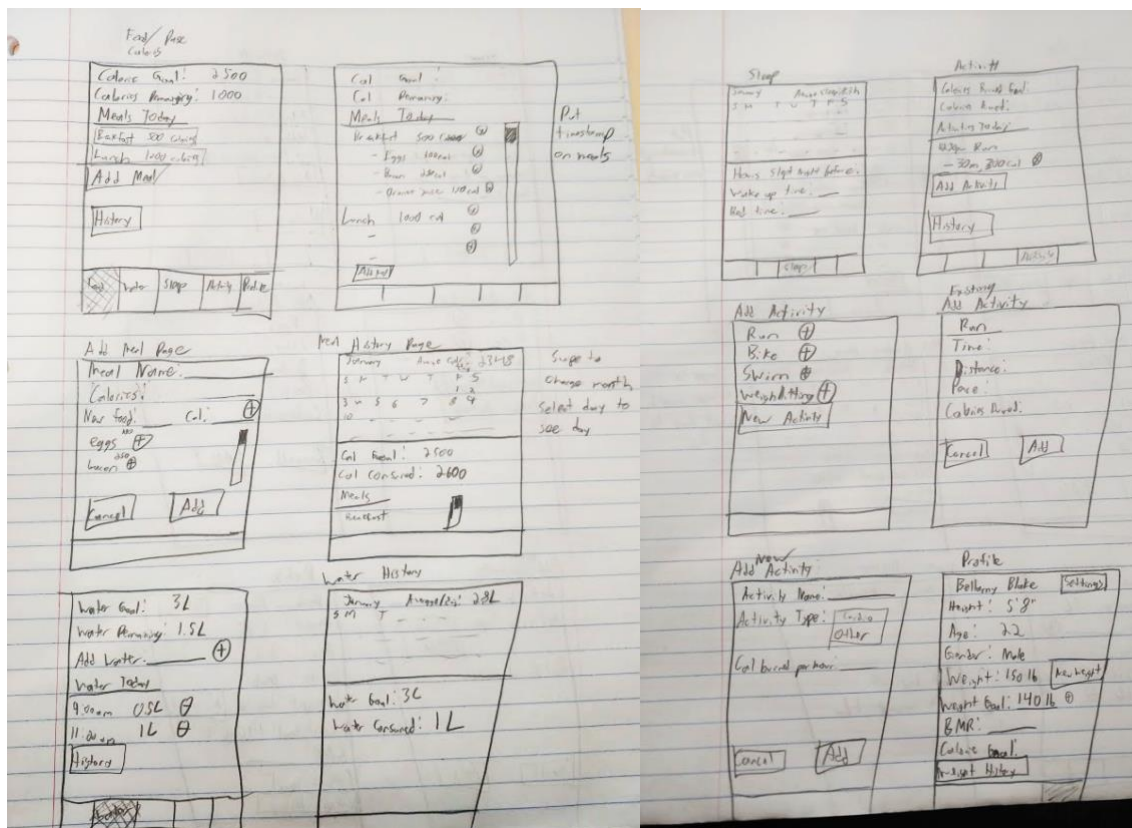 Food/ Page
Calories
Calorie Goal: 2500
Calories Remaining: 1000
Meals Today
Breakfast 500 calories
Lunch 1000 calories
Add Meal
History
Food Water Sleep Activity Profile
Cal Goal:
Cal Remaining:
Meals Today
Breakfast 500
- Eggs
- Bacon
- Orange juice
Lunch 1000 cal
-
Add
Put
timestamp
on meals
Add Meal Page
Meal Name:
Calories:
New food: Cal:
eggs
bacon 250
Cancel Add
Meal History Page
January 2348
S M T W T F S
1 2
3 4 5 6 7 8 9
10
Cal Goal: 2500
Cal Consumed: 2600
Meals
Breakfast
Swipe to
change month
select day to
see day
Water Goal: 3L
Water Remaining: 1.5L
Add Water:
Water Today
9:00am 0.5L
11:00am 1L
History
Water
Water History
January 2.8L
S M T
Water Goal: 3L
Water Consumed: 1L
Sleep
January
S M T W T F S
Hours slept night before:
Wake up time:
Bed time:
Sleep
Activity
Calories Burned Goal:
Calories Burned:
Activities Today
Run
- 30m, 300cal
Add Activity
History
Activity
Add Activity
Run
Bike
Swim
Weightlifting
New Activity
Existing
Add Activity
Run
Time:
Distance:
Pace:
Calories Burned:
Cancel Add
New
Add Activity
Activity Name:
Activity Type: Cardio
Other
Cal burned per hour:
Cancel Add
Profile
Bellamy Blake Settings
Height: 5'8"
Age: 22
Gender: Male
Weight: 150 lb New weight
Weight Goal: 140 lb
BMR:
Calorie Goal:
Weight History